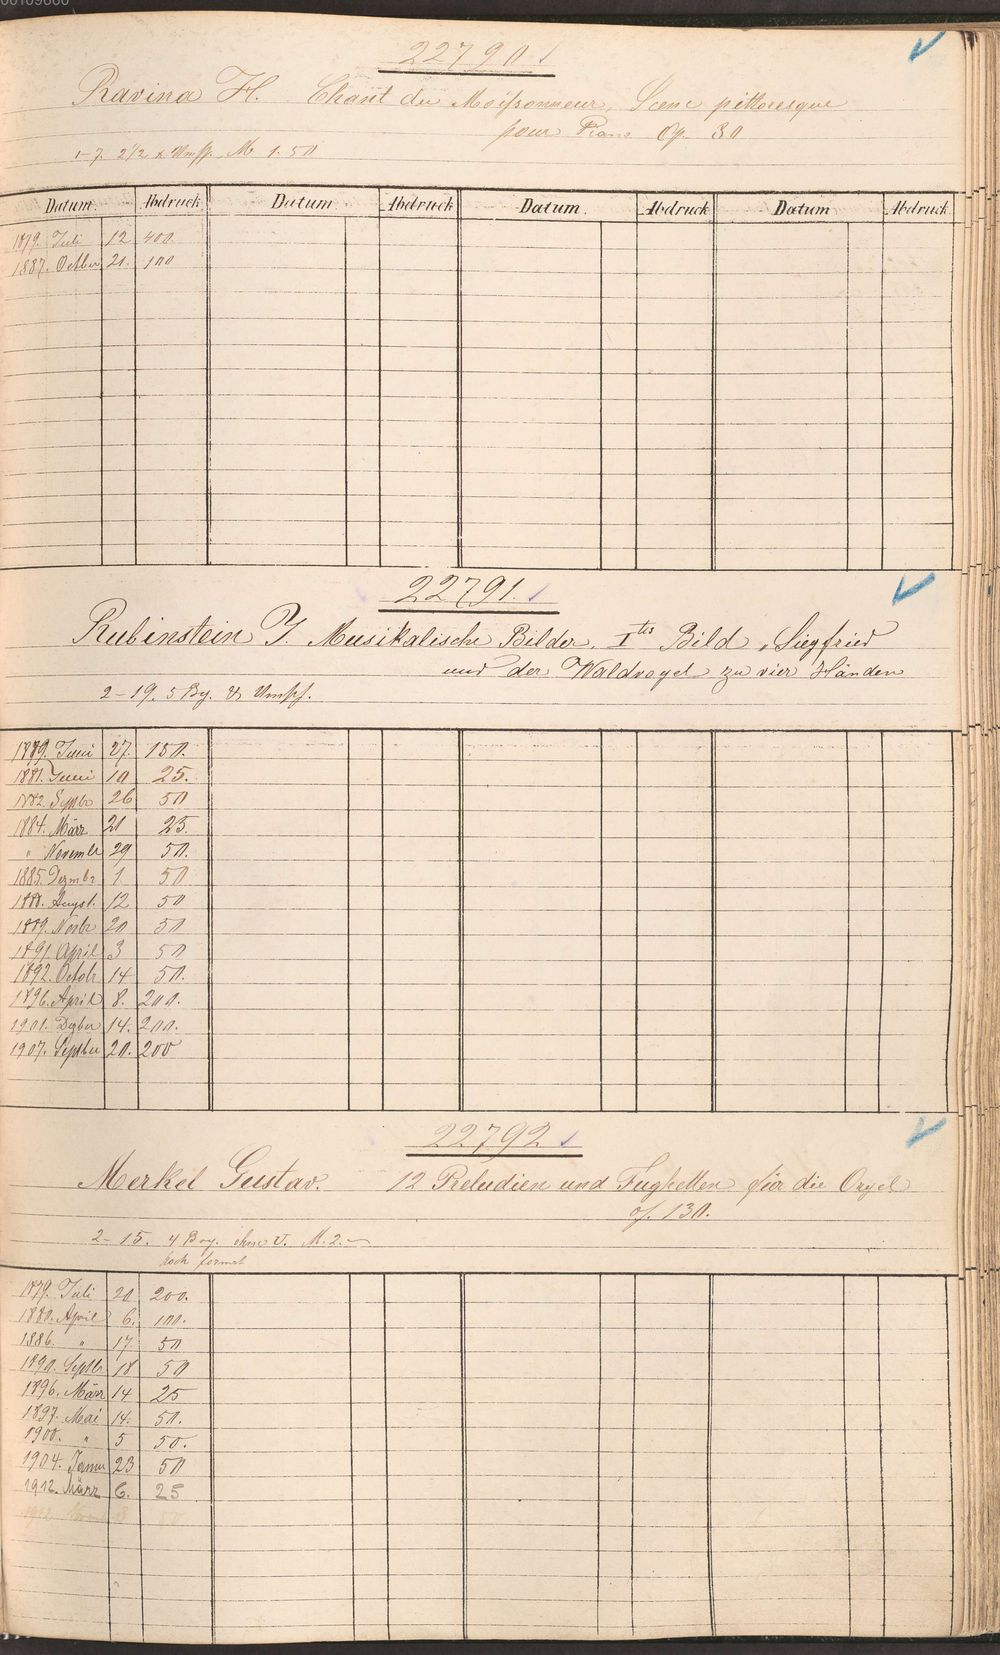 22790
Ravina H. Chant du Moissonneur, Scene pittoresque
pour Piano Op. 80
1-7. 2 1/2 x Umsch. M 1.50
Datum. Abdruck Datum Abdruck Datum. Abdruck Datum Abdruck
1879. Juli 12 400.
1887. Octber 21. 100
22791.
Rubinstein J. Musikalische Bilder. Ites Bild „Siegfried
und der Waldvogel zu vier Händen
2-19. 5 Bg. & Umsch.
1879. Juni 27. 150.
1881. Juni 10 25.
1882. Septbr 26 50
1884. März 21 25.
" Novembr 29 50.
1885. Dezmbr 1. 50
1888. August. 12 50
1889. Novbr 20 50
1891. April 3 50
1892. Octobr 14 50.
1896. April 8. 200.
1901. Dezber 14. 200.
1907. Septber 20. 200
22792
Merkel Gustav. 12 Preludien und Fughetten für die Orgel
op. 130.
2-15. 4 Bog. ohne U. M. 2.—
hoch format
1879. Juli 20 200.
1880. April 6. 100.
1886. " 17. 50
1890. Septbr 18 50
1896. März 14 25
1897. Mai 14. 50.
1900. " 5 50.
1904. Januar 23 50
1912. März 6. 25
1912. 50